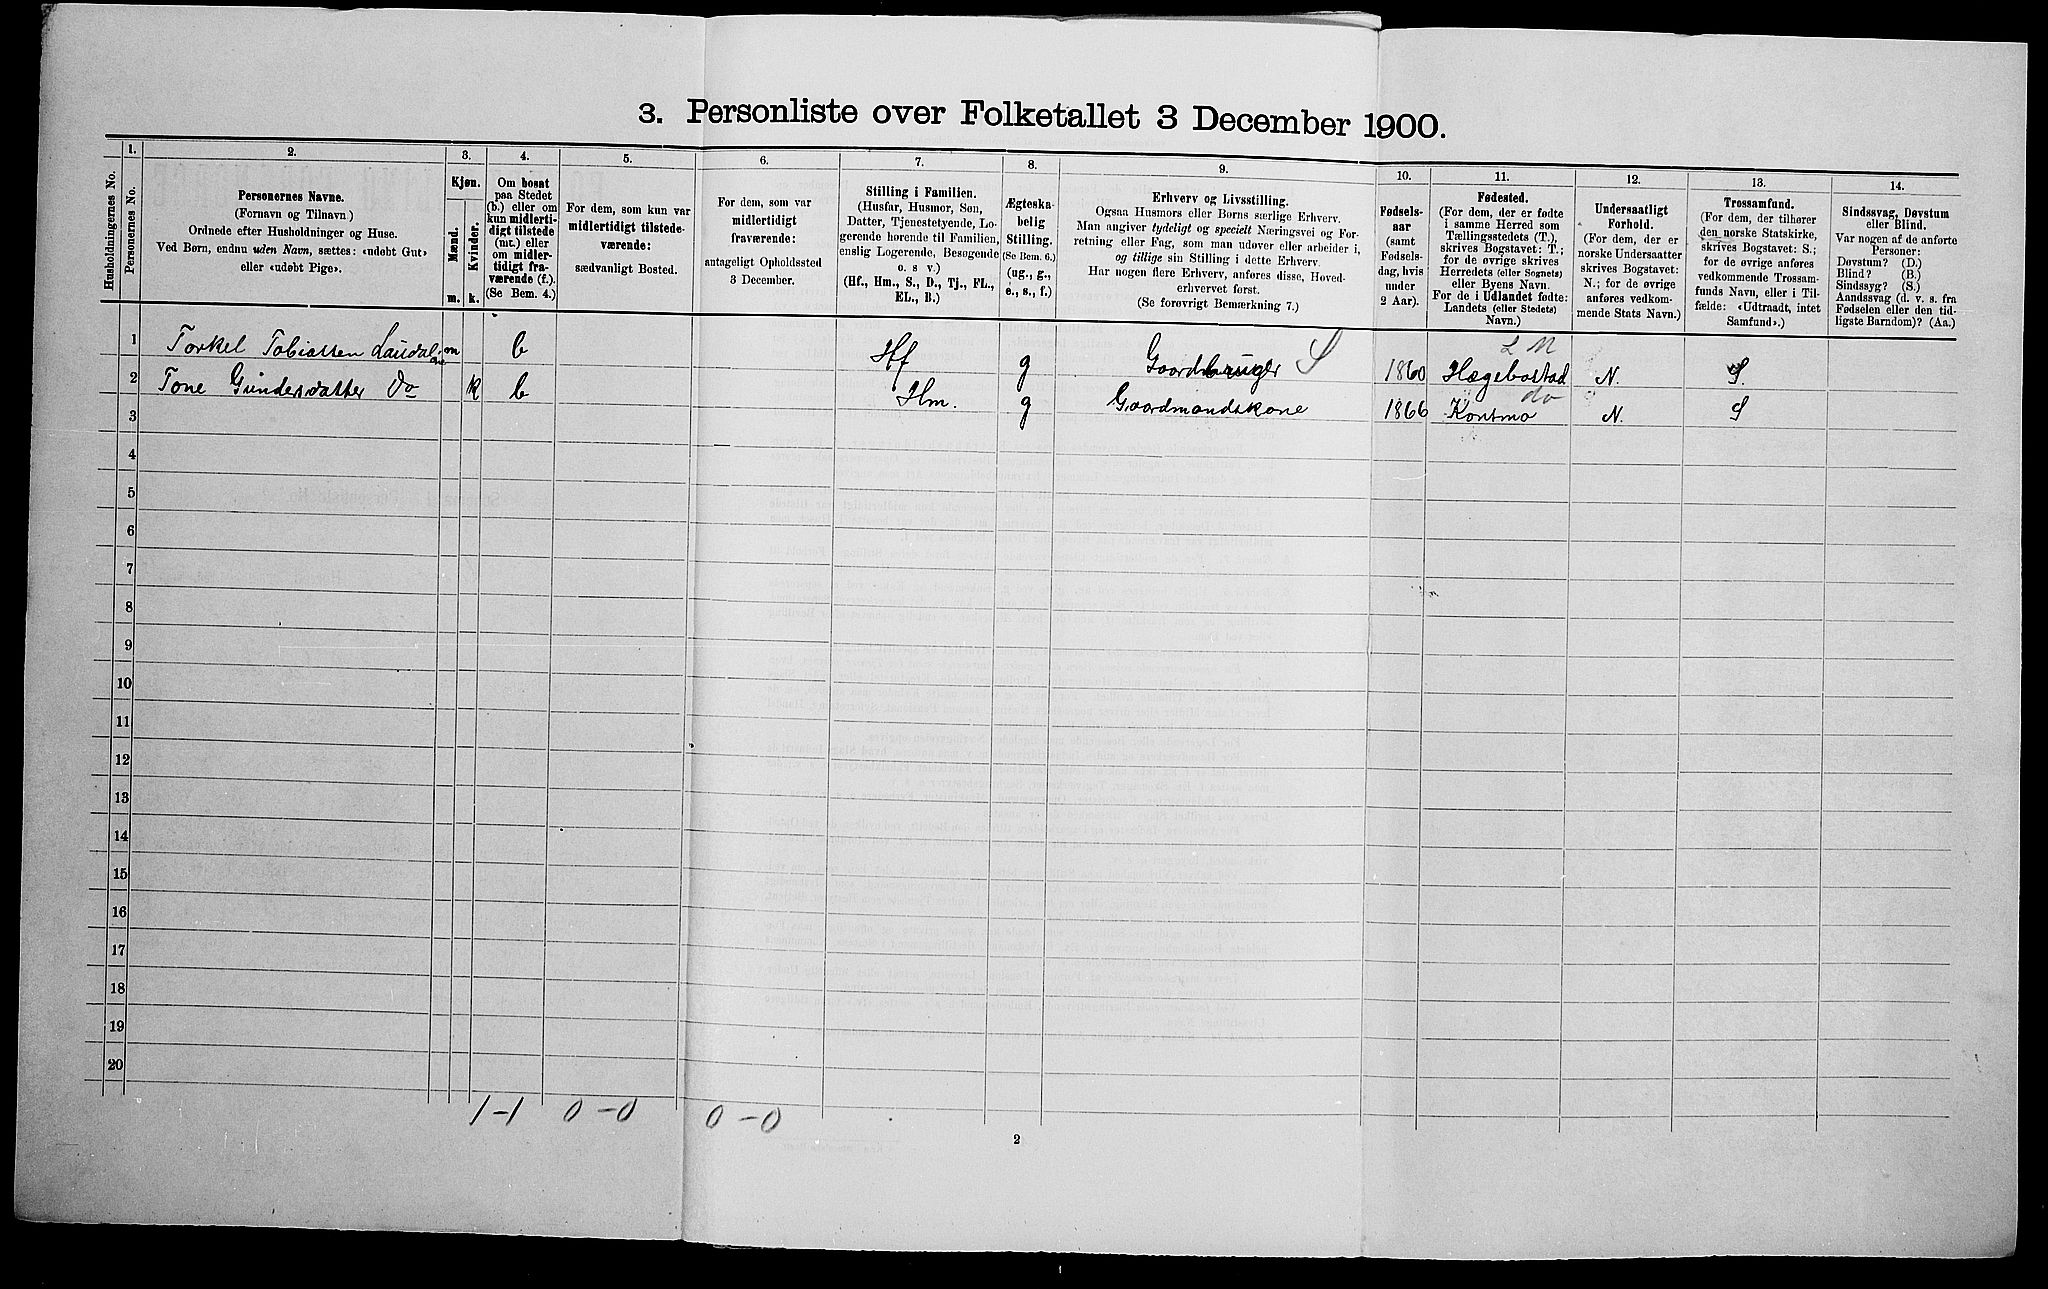 3. Personliste over Folketallet 3 December 1900.
1. 2. 3. 4. 5. 6. 7. 8. 9. 10. 11. 12. 13. 14.
Husholdningernes No.
Personernes No.
Personernes Navne.
(Fornavn og Tilnavn.)
Ordnede efter Husholdninger og Huse.
Ved Børn, endnu uden Navn, sættes: «udøbt Gut»
eller «udøbt Pige».
Kjøn.
Mænd.
Kvinder.
m. k.
Om bosat
paa Stedet
(b.) eller om
kun midlerti-
digt tilstede
(mt.) eller
om midler-
tidigt fra-
værende (f.).
(Se Bem. 4.)
For dem, som kun var
midlertidigt tilstede-
værende:
sædvanligt Bosted.
For dem, som var
midlertidigt
fraværende:
antageligt Opholdssted
3 December.
Stilling i Familien.
(Husfar, Husmor, Søn,
Datter, Tjenestetyende, Lo-
gerende hørende til Familien,
enslig Logerende, Besøgende
o. s v.)
(Hf., Hm., S., D., Tj., FL.,
EL., B.)
Ægteska-
belig
Stilling.
(Se Bem. 6.)
(ug., g.,
e., s., f.)
Erhverv og Livsstilling.
Ogsaa Husmors eller Børns særlige Erhverv.
Man angiver tydeligt og specielt Næringsvei og For-
retning eller Fag, som man udøver eller arbeider i,
og tillige sin Stilling i dette Erhverv.
Har nogen flere Erhverv, anføres disse, Hoved-
erhvervet først.
(Se forøvrigt Bemærkning 7.)
Fødsels-
aar
(samt
Fødsels-
dag, hvis
under
2 Aar).
Fødested.
(For dem, der er fødte
i samme Herred som
Tællingsstedets (T.),
skrives Bogstavet: T.;
for de øvrige skrives
Herredets (eller Sognets)
eller Byens Navn.
For de i Udlandet fødte:
Landets (eller Stedets)
Navn.)
Undersaatligt
Forhold.
(For dem, der er
norske Undersaatter
skrives Bogstavet:
N.; for de øvrige
anføres vedkom-
mende Stats Navn.)
Trossamfund.
(For dem, der tilhører
den norske Statskirke,
skrives Bogstavet: S.;
for de øvrige anføres
vedkommende Trossam-
funds Navn, eller i Til-
fælde: «Udtraadt, intet
Samfund».)
Sindssvag, Døvstum
eller Blind.
Var nogen af de anførte
Personer:
Døvstum? (D.)
Blind? (B.)
Sindssyg? (S.)
Aandssvag (d. v. s. fra
Fødselen eller den tid-
ligste Barndom)? (Aa.)
L M
1 Torkel Tobiassen Laudal m b Hf g Gaardbruger S 1860 Hægebostad N. S.
do
2 Tone Gundersdatter Do k b Hm. g Gaardmandskone 1866 Konsmo N. S
3
4
5
6
7
8
9
10
11
12
13
14
15
16
17
18
19
20
1-1 0-0 0-0
2